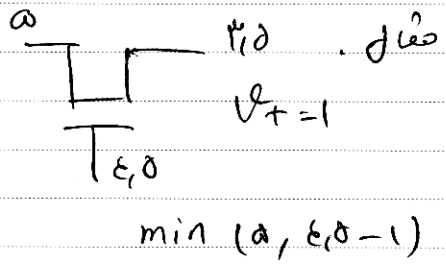 مثال .
۵
۳,۵
V_T = 1
۴,۵
min (۵, ۴,۵ - 1)